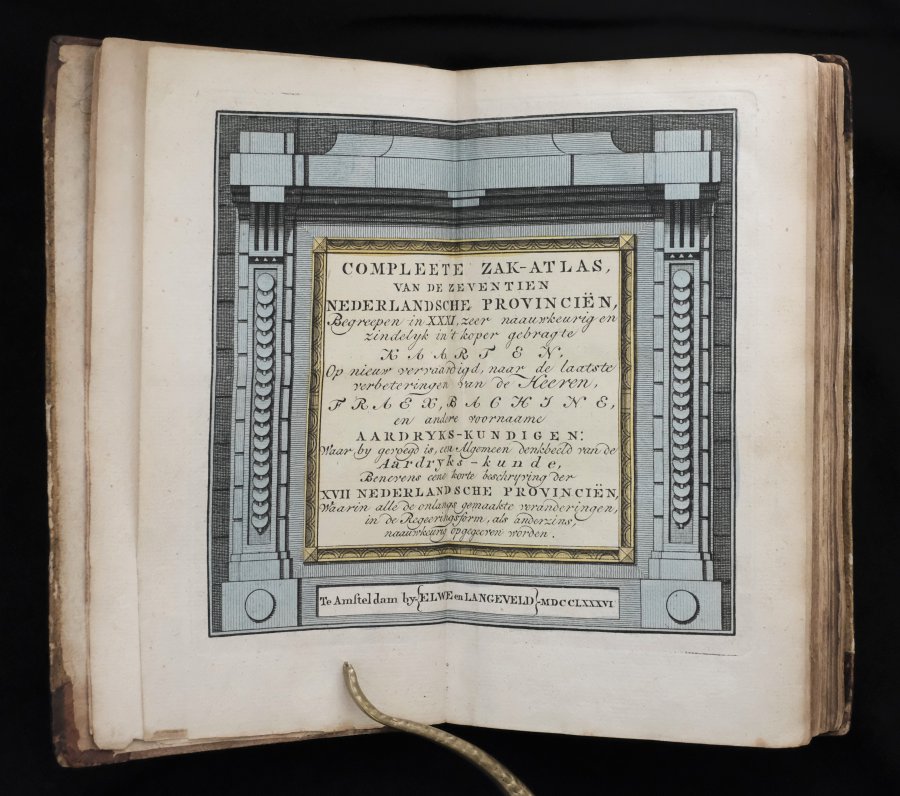 COMPLEETE ZAK-ATLAS,
VAN DE ZEVENTIEN
NEDERLANDSCHE PROVINCIËN,
Begreepen in XXXI, zeer naauwkeurig en
zindelyk in't koper gebragte
KAARTEN,
Op nieuw vervaardigd, naar de laatste
verbeteringen van de Heeren,
FRAEX, BACHINE,
en andere voornaame
AARDRYKS-KUNDIGEN:
Waar by gevoegd is, een Algemeen denkbeeld van de
Aardryks-kunde,
Benevens eene korte beschryving der
XVII NEDERLANDSCHE PROVINCIËN,
Waarin alle de onlangs gemaakte veranderingen,
in de Regeeringsform, als anderzins,
naauwkeurig opgegeeven worden.
Te Amsteldam by {ELWE en LANGEVELD} MDCCLXXXVI